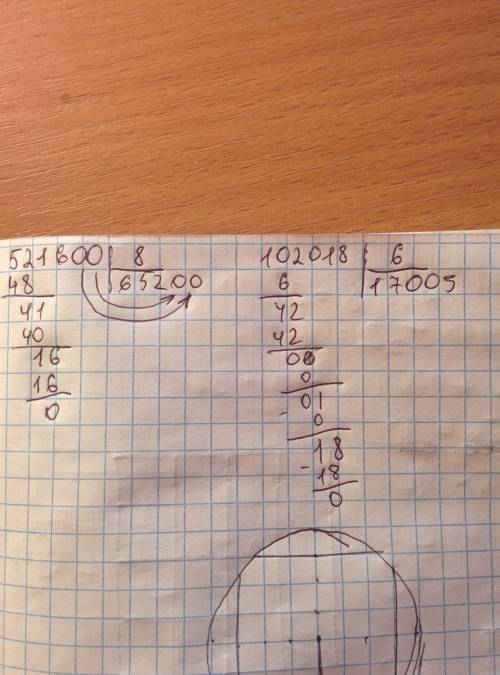 521600 8
48 65200
41
40
16
16
0
102018 6
6 17005
42
42
00
0
01
- 0
18
- 18
0